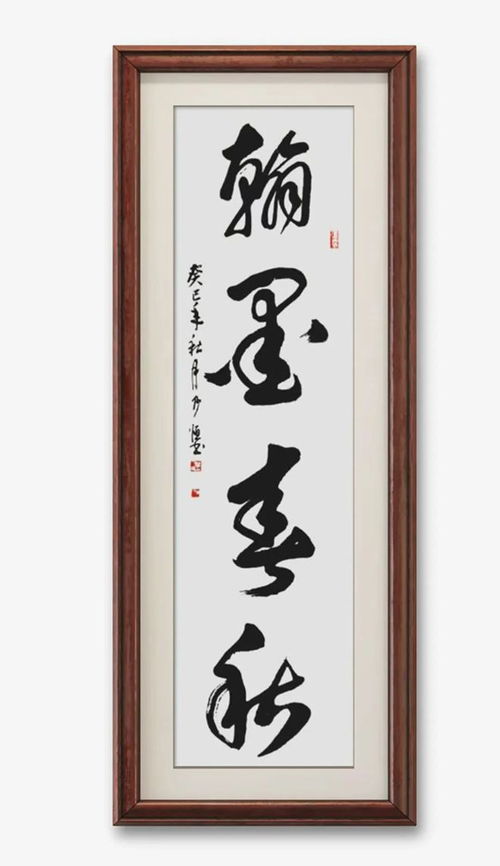 翰墨春秋
癸巳年秋月